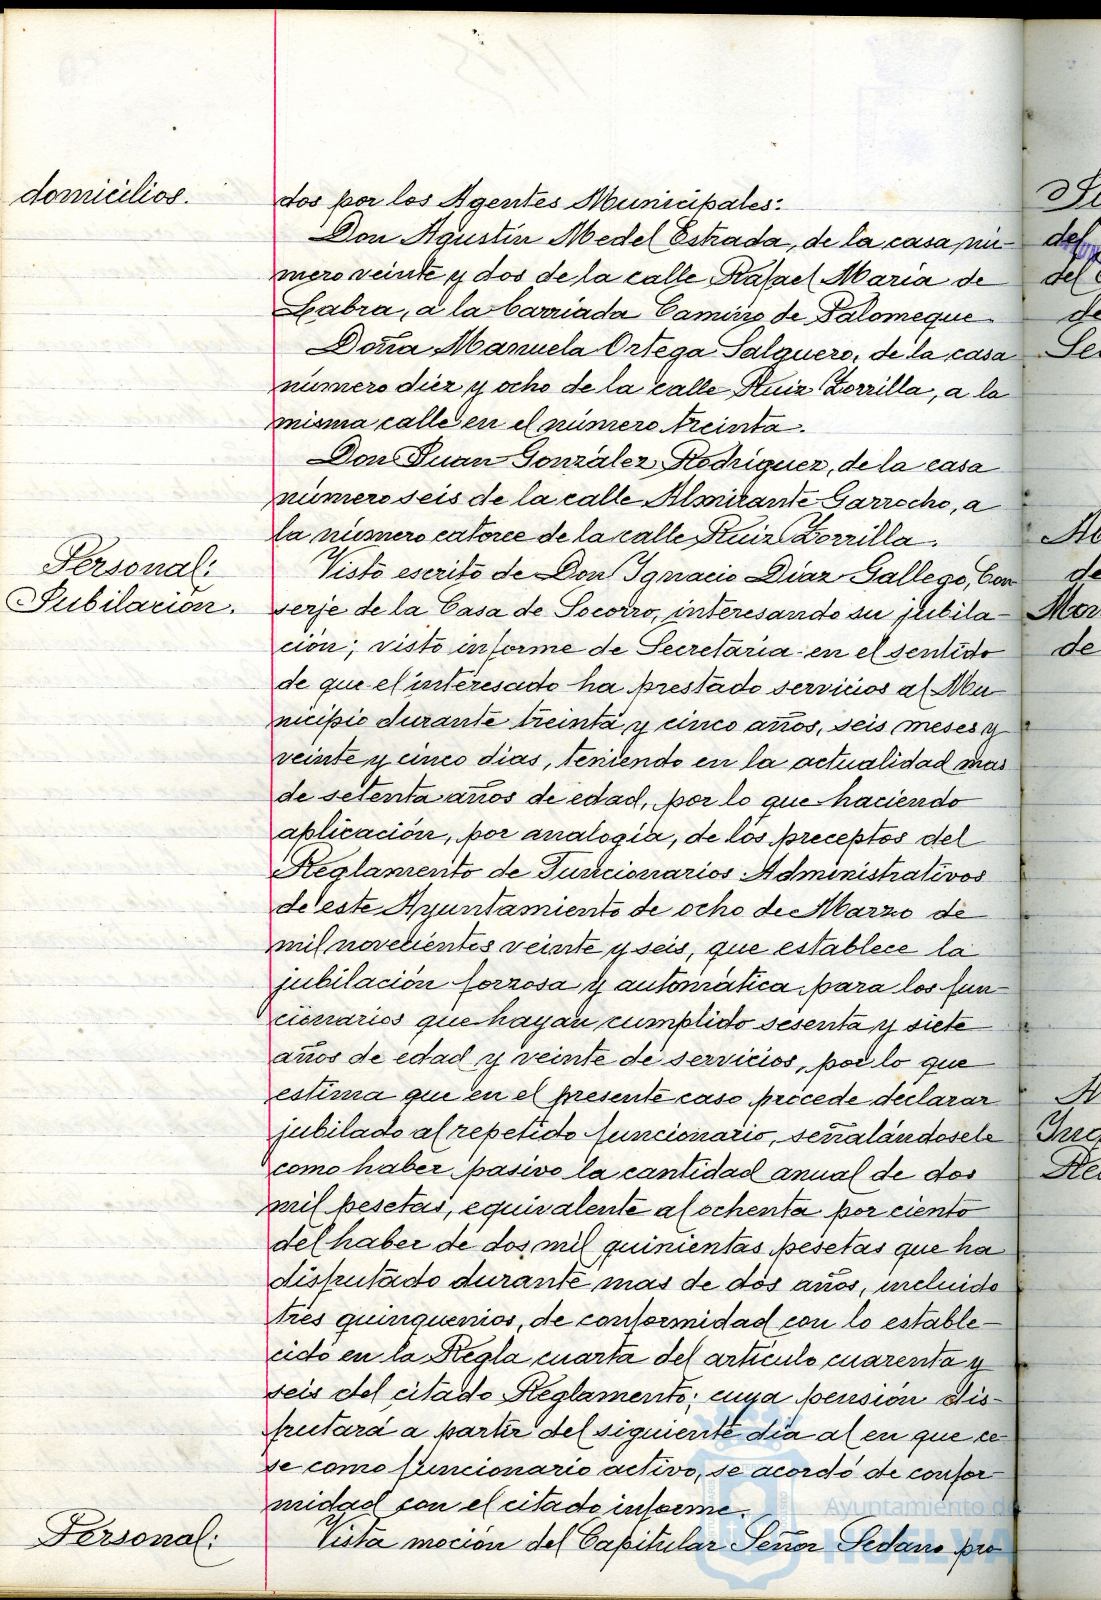 domicilios.
dos por los Agentes Municipales:
Don Agustín Medel Estrada, de la casa nú-
mero veinte y dos de la calle Rafael María de
Labra, a la barriada Camino de Palomeque.
Doña Manuela Ortega Salguero, de la casa
número diez y ocho de la calle Ruiz Zorrilla, a la
misma calle en el número treinta.
Don Juan González Rodríguez, de la casa
número seis de la calle Almirante Garrocho, a
la número catorce de la calle Ruiz Zorrilla.
Personal:
Jubilación.
Visto escrito de Don Ignacio Díaz Gallego, Con
serje de la Casa de Socorro, interesando su jubila-
ción; visto informe de Secretaría en el sentido
de que el interesado ha prestado servicios al Mu
nicipio durante treinta y cinco años, seis meses y
veinte y cinco dias, teniendo en la actualidad mas
de setenta años de edad, por lo que haciendo
aplicación, por analogía, de los preceptos del
Reglamento de Funcionarios Administrativos
de este Ayuntamiento de ocho de Marzo de
mil novecientos veinte y seis, que establece la
jubilación forzosa y automática para los fun-
cionarios que hayan cumplido sesenta y siete
años de edad y veinte de servicios, por lo que
estima que en el presente caso procede declarar
jubilado al repetido funcionario, señalándosele
como haber pasivo la cantidad anual de dos
mil pesetas, equivalente al ochenta por ciento
del haber de dos mil quinientas pesetas que ha
disfrutado durante mas de dos años, incluido
tres quinquenios, de conformidad con lo estable-
cido en la Regla cuarta del artículo cuarenta y
seis del citado Reglamento; cuya pensión dis-
frutará a partir del siguiente día al en que ce
se como funcionario activo, se acordó de confor-
midad con el citado informe.
Personal:
Vista moción del Capitular Señor Sedano pro
Ayuntamiento de
HUELVA